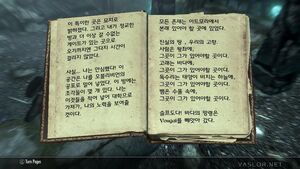 이 특이한 곳은 묘지로
밝혀졌다. 그리고 내가 정교한
방과 더 이상 갈 수없는
게이트가 있는 곳으로
오기까지엔 그다지 시간이
걸리지 않았다.
사실... 나는 안심했다! 이
공간은 나를 오블리비언의
공포로 몰아 넣었다. 이 방에는
조각들이 몇 개 있다. 나는
이것들을 적어 넣어 대학으로
가져가, 나의 노력을 보여줄
것이다.
모든 존재는 아트모라에서
본래 있어야 할 곳에 있다.
진실의 땅 , 우리의 고향.
사람은 왕좌에,
그곳이 그가 있어야할 곳이다.
고래는 바다에,
그곳이 그가 있어야할 곳이다.
독수리는 태양이 비치는 하늘에,
그곳이 그가 있어야할 곳이다.
뱀은 수풀 속에,
그곳이 그가 있어야할 곳이다.
슬프도다! 바다의 망령은
Vosjol를 빼앗아 갔다.
Turn Pages
VASLOR.NET